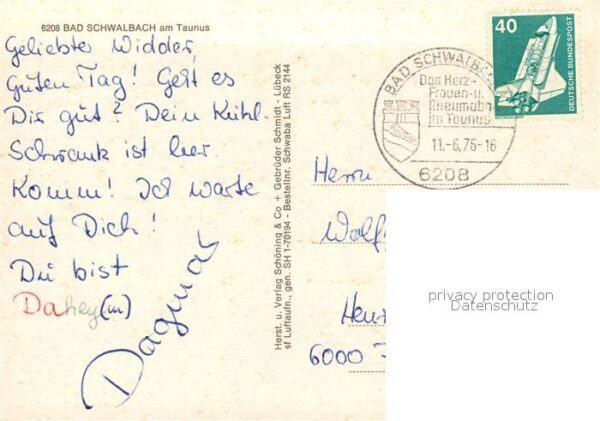 6208 BAD SCHWALBACH am Taunus
Geliebter Widder,
Guten Tag! Geht es
Dir gut? Dein Kühl-
Schrank ist hier.
Komm! Ich warte
auf Dich!
Du bist
Da
(m)
Dagmar
Herst. u. Verlag Schöning & Co + Gebrüder Schmidt - Lübeck
sf Luftaufn., gen. SH 1-70194 - Bestellnr. Schwaba Luft RS 2144
BAD SCHWALB
Das Herz-
Frauen-u.
Rheumaba
im Taunus
11.-6.76-16
6208
40
DEUTSCHE BUNDESPOST
Herrn
Wolf
6000
privacy protection
Datenschutz